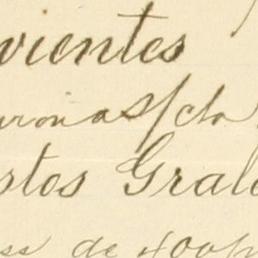 vientes
uronas s/cta
stos Grale
ss de 400